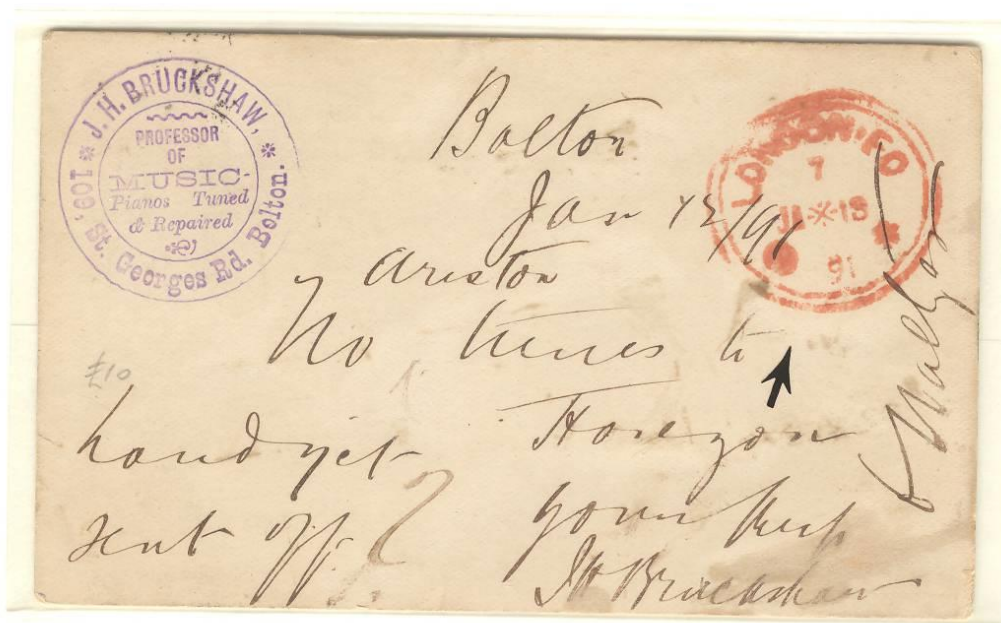 J. H. BRUCKSHAW,
109, St. Georges Rd. Bolton.
PROFESSOR
OF
MUSIC.
Pianos Tuned
& Repaired
LONDON. F.O
7
JA 13
91
Bolton
Jan 12/91
Ariston
No tunes to
hand yet Have you
sent off?
yours
JH Bruckshaw
£10